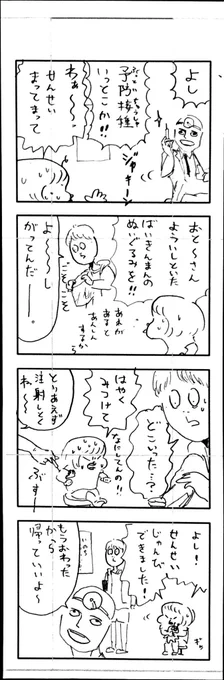 よし
予防接種
いっとこか!!
ジャキーン
わぁ〜〜、
せんせい
まってまって
おと〜さん
ようい しといた
ばいきんまんの
ぬいぐるみを!!
あれが
あると
あんしん
するから
ごそごそ
よ〜〜し
がってんだ
ー。
どこいった…?
はやく
みつけて
なにしてんの!!
とりあえず
注射しとく
ね〜
ぶすー
よし!
せんせい
じゅんび
できました!
ぎゅ
もうおわった
から
帰っていいよ〜